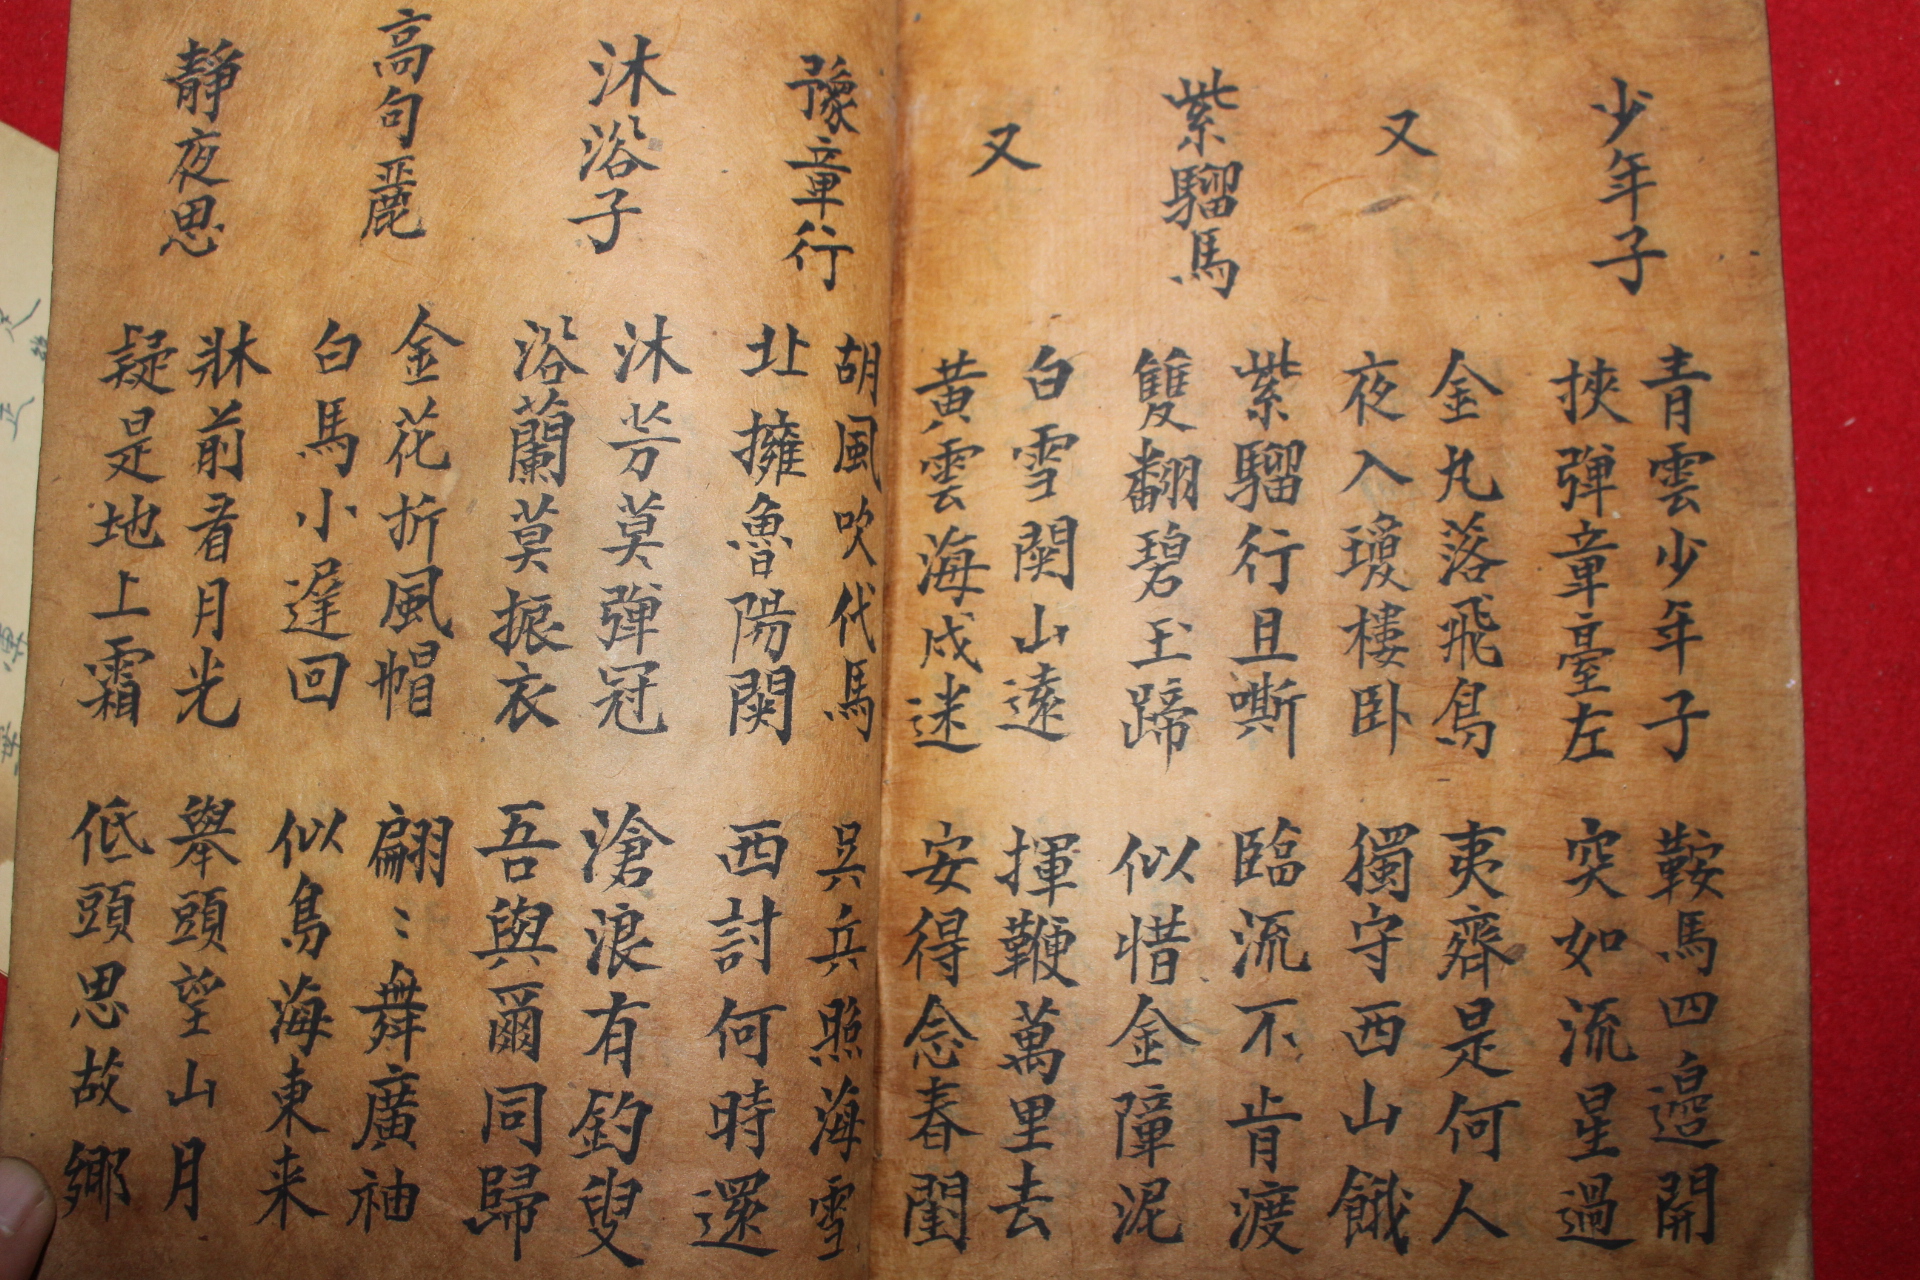 少年子
青雲少年子 鞍馬四邉開
挾彈章臺左 突如流星過
又
金丸落飛鳥 夷齊是何人
夜入瓊樓卧 獨守西山餓
紫騮馬
紫騮行且嘶 臨流不肯渡
雙翻碧玉蹄 似惜金障泥
又
白雪関山遠 揮鞭萬里去
黄雲海戍迷 安得念春閨
豫章行
胡風吹代馬 吴兵照海雪
北擁魯陽関 西討何時還
沐浴子
沐芳莫彈冠 滄浪有釣叟
浴蘭莫振衣 吾與爾同歸
高句麗
金花折風帽 翩〻舞廣袖
白馬小遅回 似鳥海東来
靜夜思
牀前看月光 舉頭望山月
疑是地上霜 低頭思故鄉